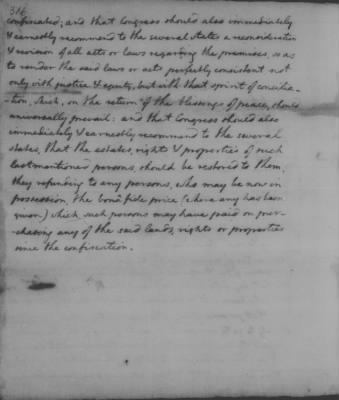 316
confiscated; and that Congress should also immediately
& earnestly recommend to the several states a reconsideration
& revision of all acts or laws regarding the premises, so as
to render the said laws or acts perfectly consistent not
only with justice & equity, but with that spirit of concilia-
tion, which, on the return of the blessings of peace, should
universally prevail: and that Congress should also
immediately & earnestly recommend to the several
states, that the estates, rights & properties of such
last mentioned persons, should be restored to them,
they refunding to any persons, who may be now in
possession, the bonâ fide price (where any has been
given) which such persons may have paid on pur-
chasing any of the said lands, rights or properties
since the confiscation.